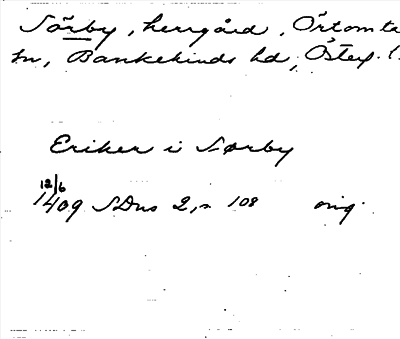 Sörby, herrgård, Örtomta
sn, Bankekinds hd, Östergl.
Eriker i Sørby
12/6
1409 SDns 2, s 108 orig.